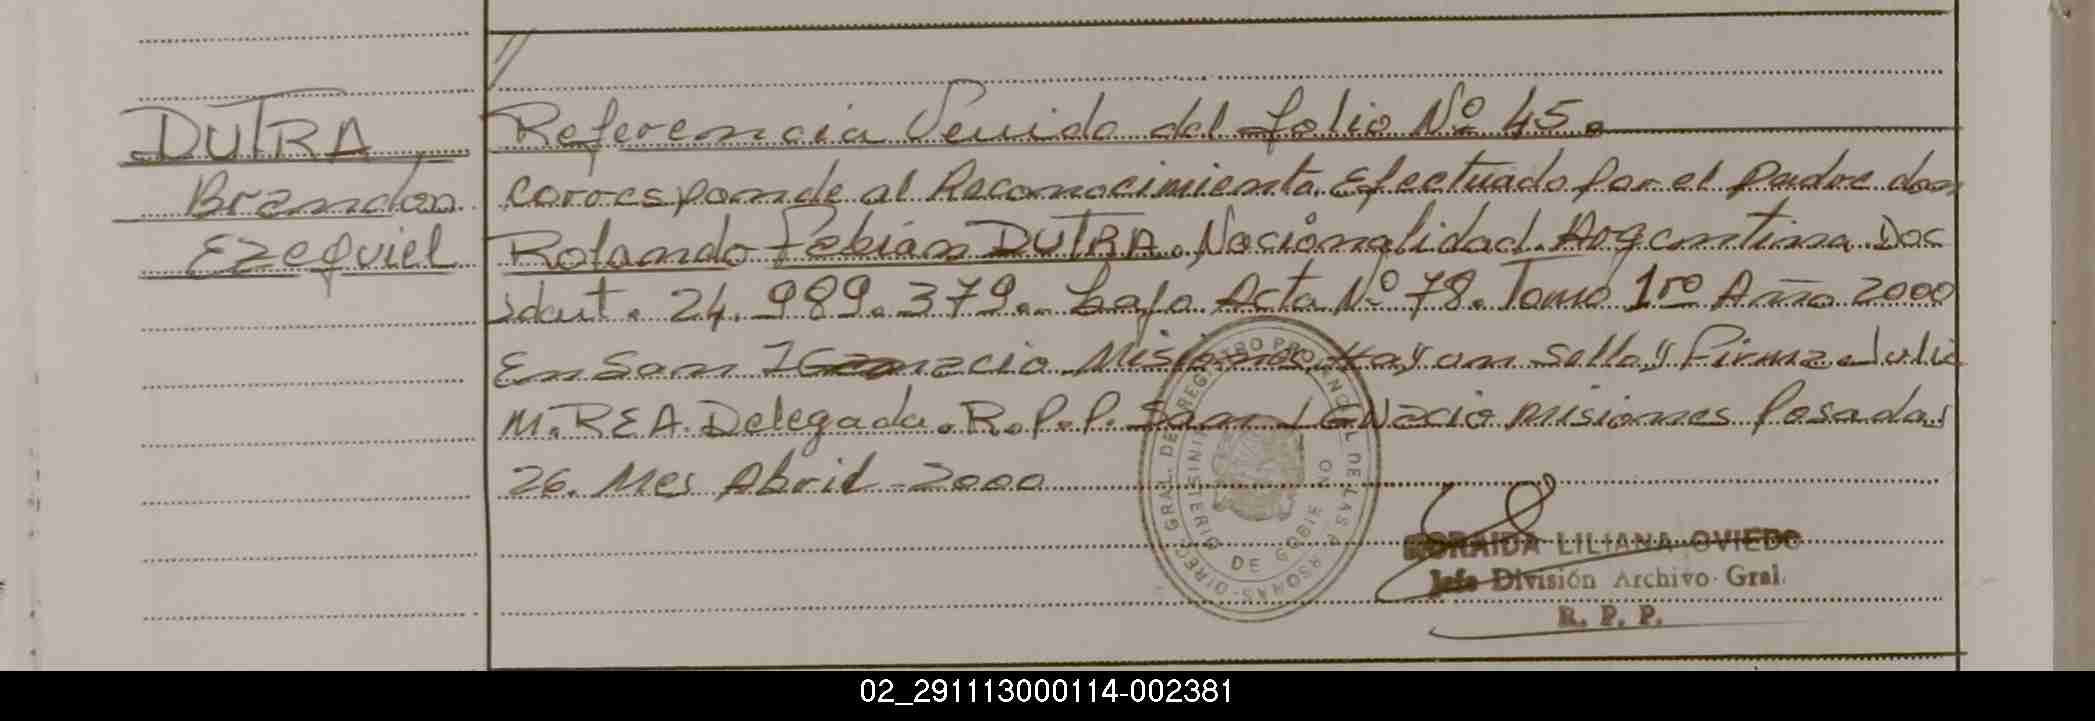 DUTRA
Brandon
Ezequiel
Referencia Venida del folio Nº 45.
corresponde al Reconocimiento Efectuado por el padre don
Rolando Fabián DUTRA. Nacionalidad Argentina Doc
Ident. 24.989.379. bajo Acta Nº 78. Tomo 1ro Año 2000
En San IGnacio Misiones Hay un Sello y Firma Julia
M. REA. Delegada. R.P.P. San IGNacio Misiones Posadas
26. Mes Abril 2000
LILIANA OVIEDO
Jefe División Archivo Gral.
R. P. P.
02_291113000114-002381